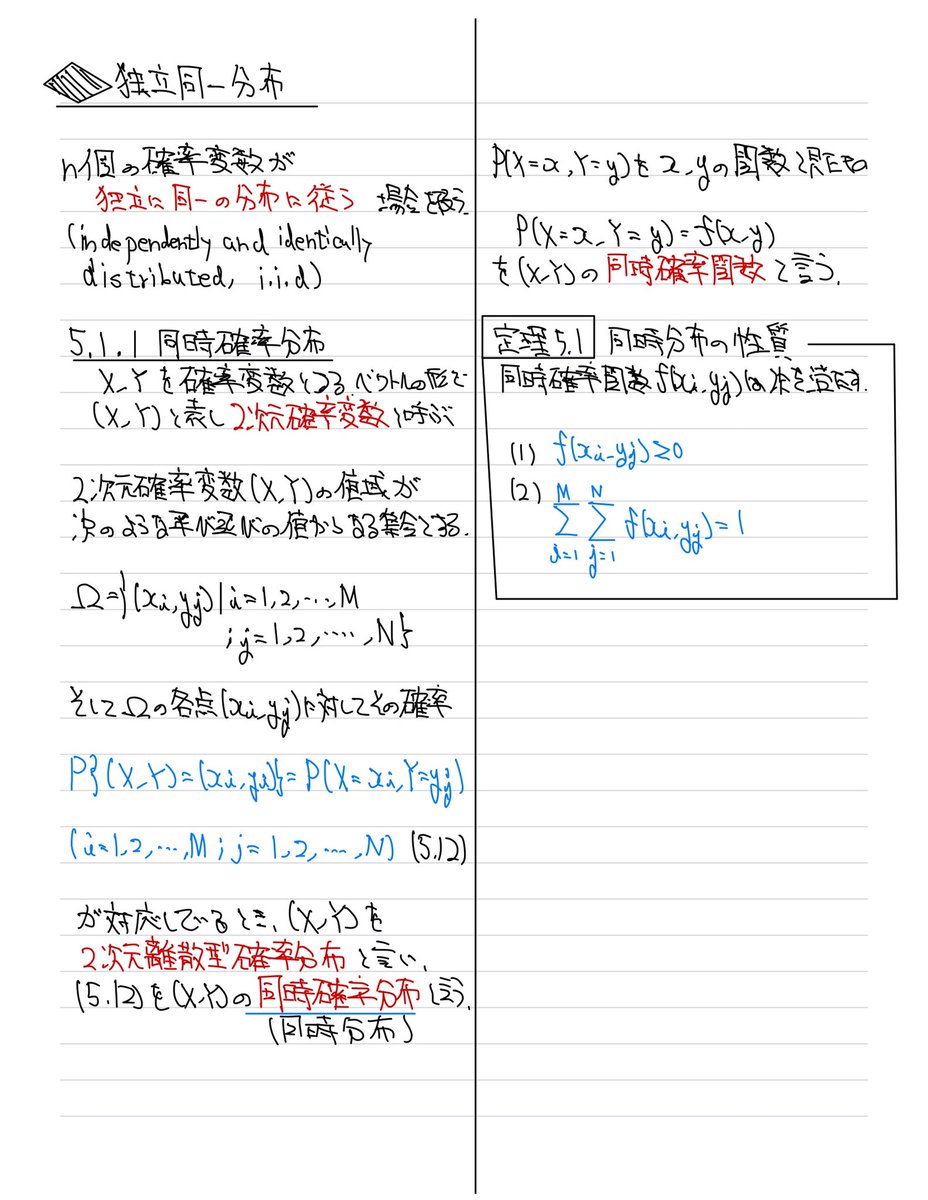 独立同一分布
n個の確率変数が
独立に同一の分布に従う 場合を扱う.
(independently and identically
distributed, i.i.d)
5.1.1 同時確率分布
X, Yを確率変数とする. ベクトルの形で
(X, Y)と表し2次元確率変数と呼ぶ
2次元確率変数(X, Y)の値域が
次のような 値からなる集合とする.
Ω={(xi, yj) | i=1,2,…,M
; j=1,2,…,N}
そしてΩの各点(xi, yj)に対してその確率
P{(X, Y)=(xi, yj)}=P(X=xi, Y=yj)
(i=1,2,…,M ; j=1,2,…,N) (5.12)
が対応しているとき, (X, Y)を
2次元離散型確率分布と言い,
(5.12)を(X, Y)の同時確率分布と言う.
(同時分布)
P(X=x, Y=y)をx, yの関数と見たもの
P(X=x, Y=y)=f(x, y)
を(X, Y)の同時確率関数と言う.
定理5.1 同時分布の性質
同時確率関数f(xi, yj)は次を満たす.
(1) f(xi, yj)≥0
(2) M∑i=1 N∑j=1 f(xi, yj)=1